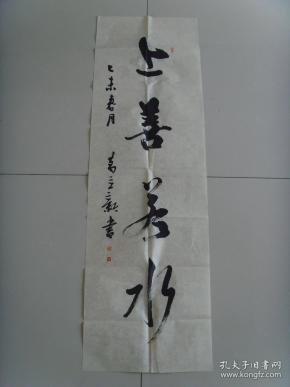 上善若水
乙未春月
高立新书
孔夫子旧书网